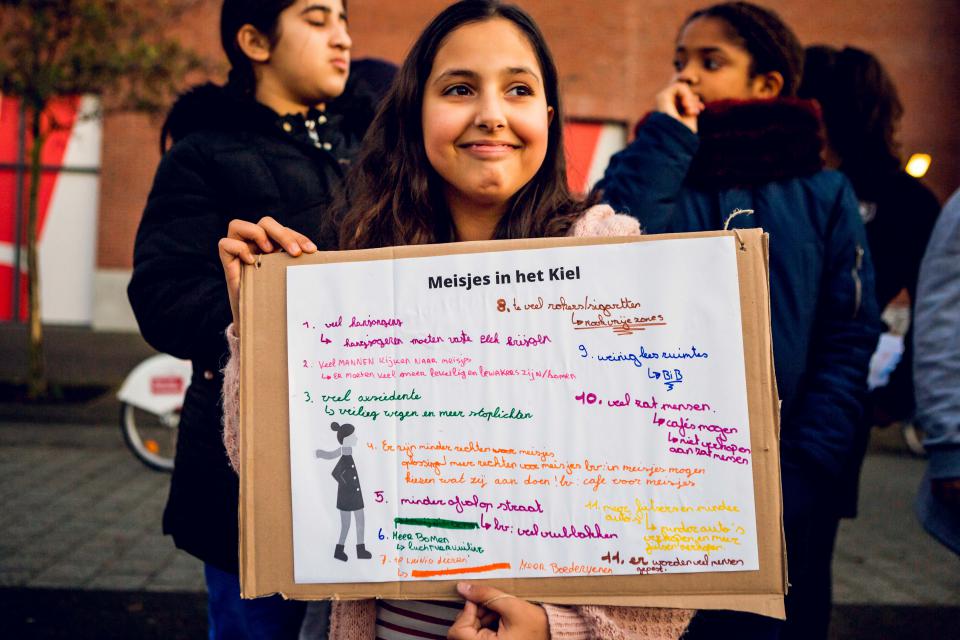 Meisjes in het Kiel
8. te veel rokers/sigaretten
↳ rookvrije zones
1. veel hangjongens
↳ hangjongeren moeten vaste plek krijgen
2. Veel MANNEN kijken NAAR meisjes
↳ er moeten veel meer beveiligen bewakers zijn/komen
3. veel axsidente
↳ veilieg wegen en meer stoplichten
9. weinig lees ruimtes
↳ BiB
10. veel zat mensen.
↳ cafés mogen
↳ niet verkopen
aan zat mensen
4. Er zijn minder rechten voor meisjes
oplossing! meer rechten voor meisjes bv: en meisjes mogen
kiezen wat zij aan doen! bv: cafe voor meisjes
5. minder afval op straat
↳ bv: veel vuilbakken
6. MEER BOMEN
↳ luchtvervuiling
7. te weinig dieren
↳ MEER Boerderijen
11. meer fietsen en minder
auto's
↳ minder auto's
verkopen en meer
fietsen verkopen
11. er worden veel mensen
gepest.